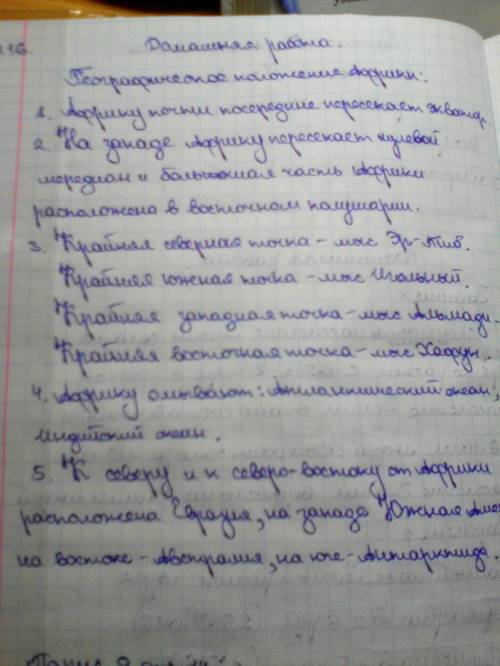 16.
Домашняя работа.
Географическое положение Африки:.
1. Африку почти посередине пересекает экватор.
2. На западе Африку пересекает нулевой
меридиан и большая часть Африки
расположена в восточном полушарии.
3. Крайняя северная точка - мыс Эр-Тиб.
Крайняя южная точка - мыс Игольный.
Крайняя западная точка - мыс Альмади.
Крайняя восточная точка - мыс Хафун.
4. Африку омывают: Атлантический океан,
Индийский океан.
5. К северу и к северо-востоку от Африки
расположена Евразия, на западе Южная Аме
на востоке - Австралия, на юге - Антарктида.